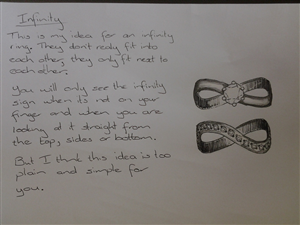 Infinity
This is my idea for an infinity
ring. They don't really fit into
each other, they only fit next to
each other.
You will only see the infinity
sign when it's not on your
finger and when you are
looking at it straight from
the top, sides or bottom.
But I think this idea is too
plain and simple for
you.